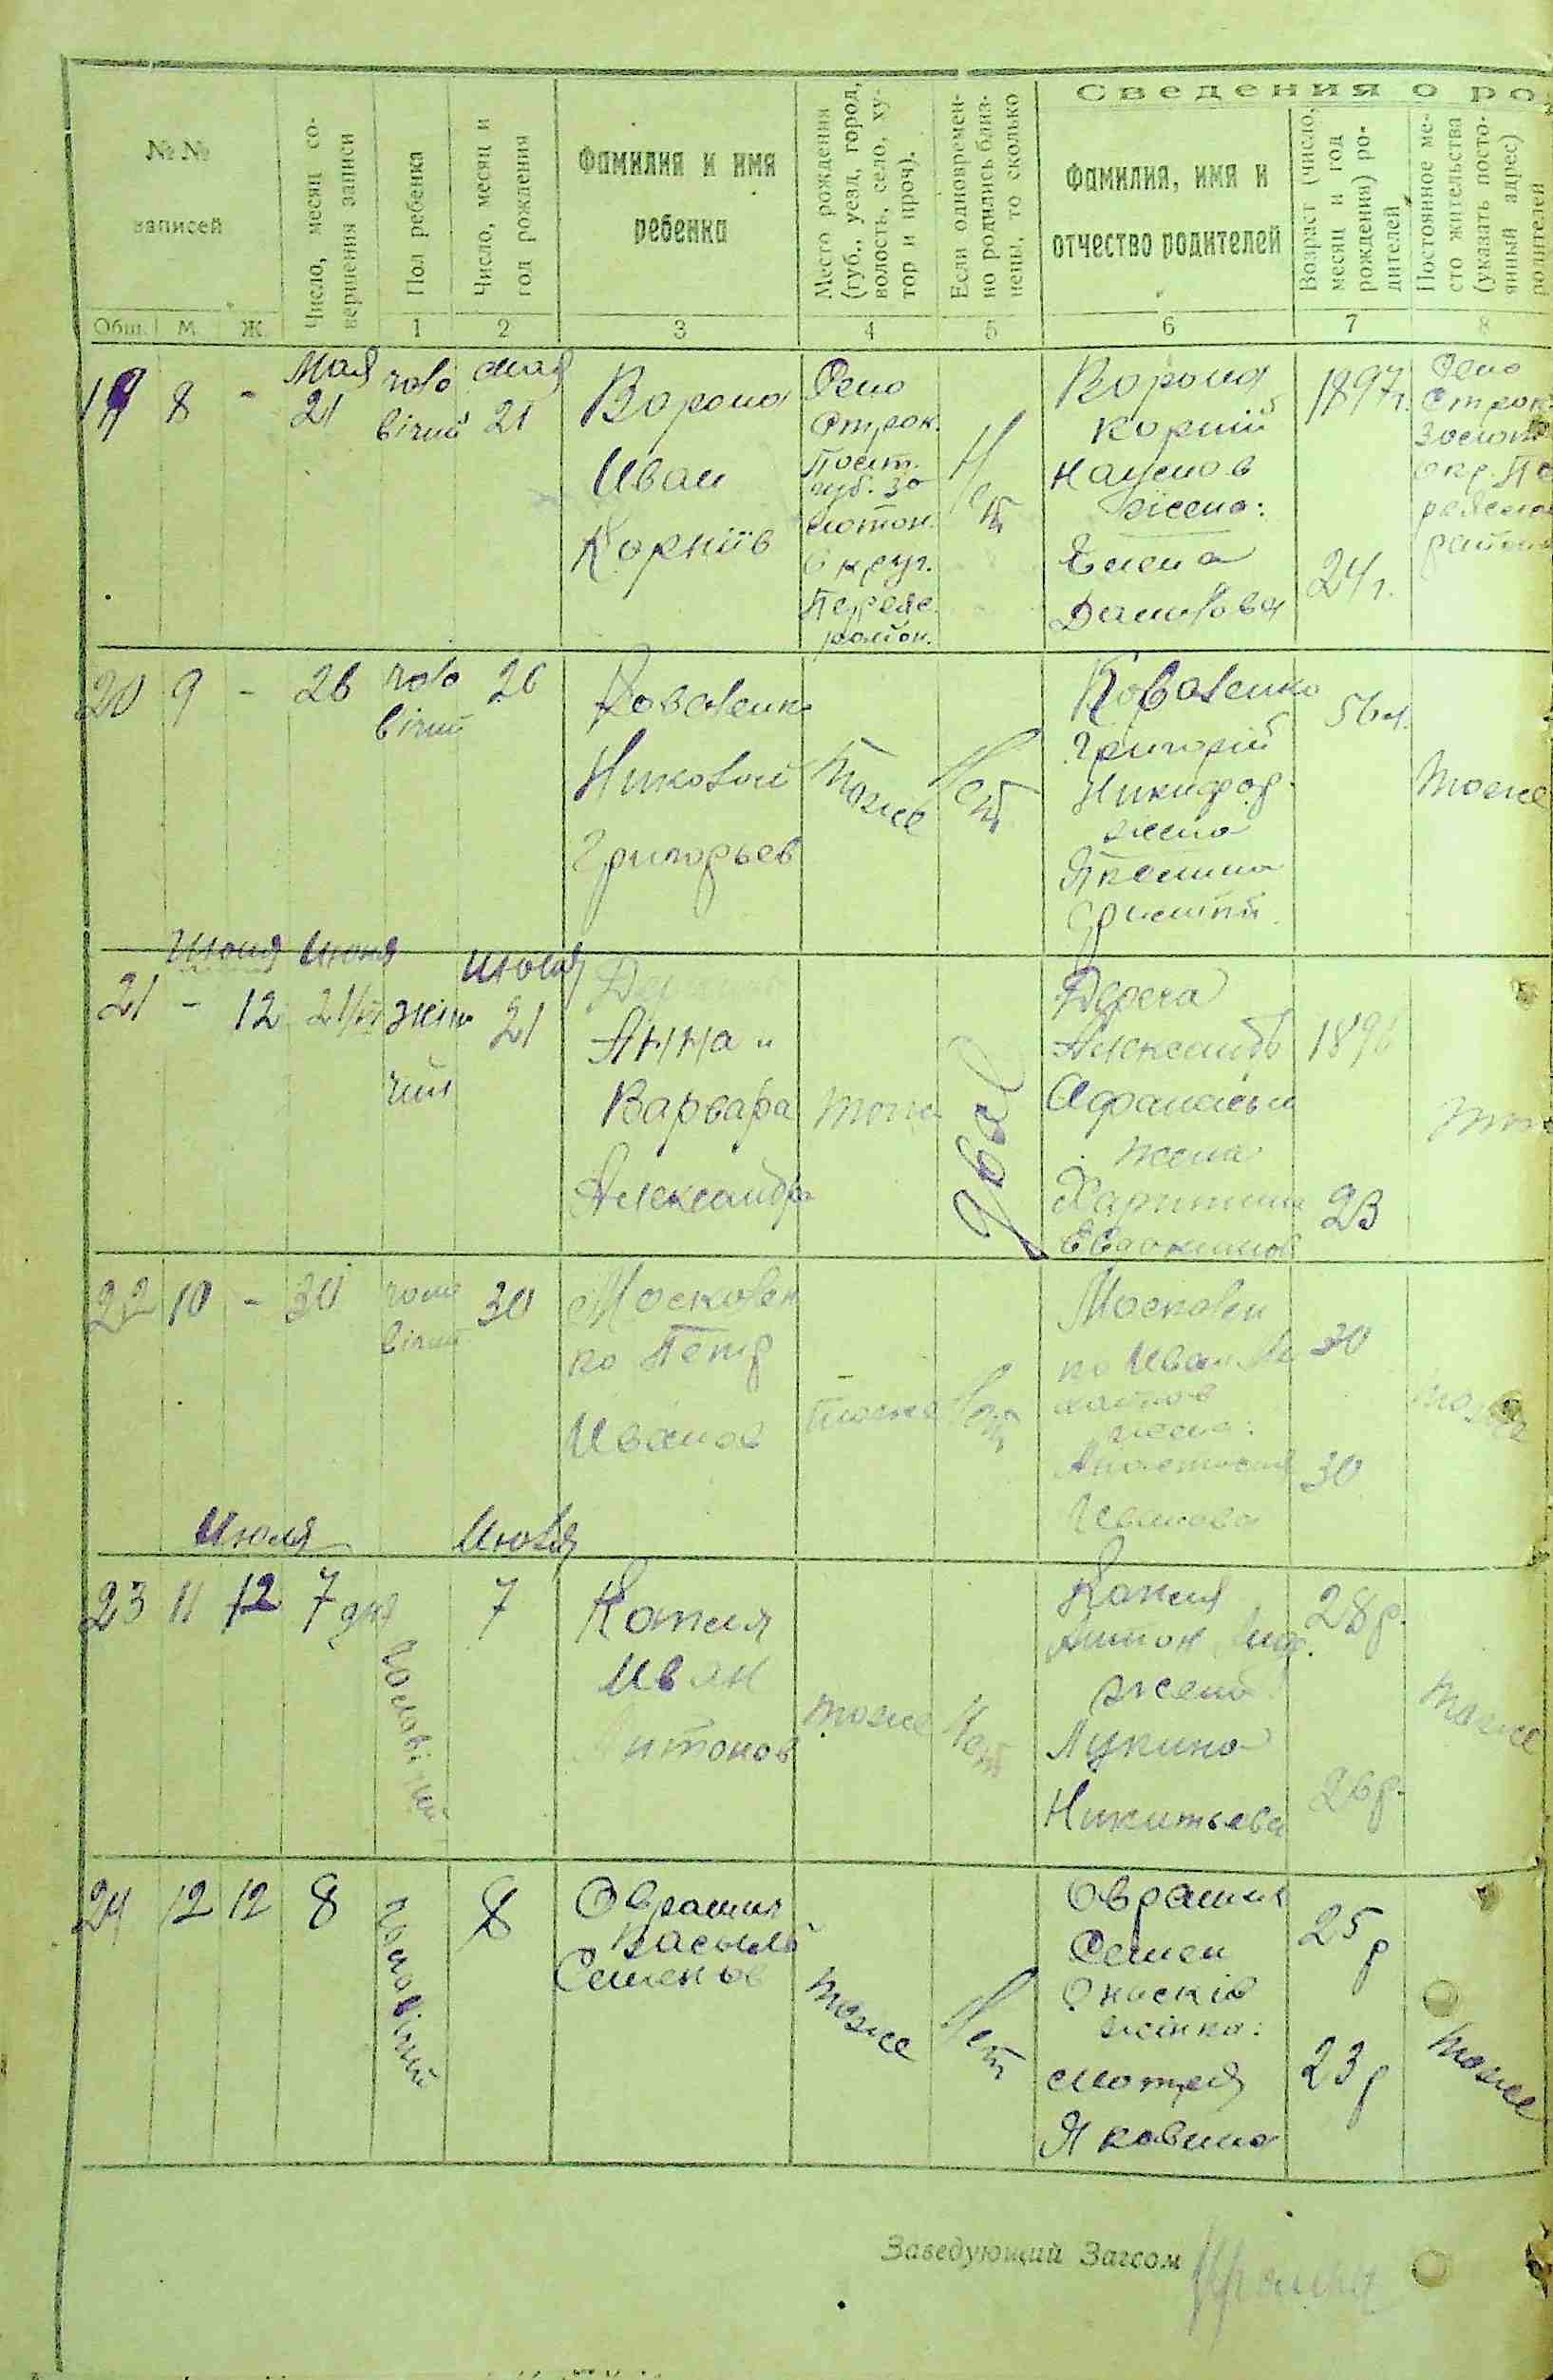 Сведения о ро
№ №
записей
Число, месяц со-
вершения записи
Пол ребенка
Число, месяц и
год рождения
Фамилия и имя
ребенка
Место рождения
(губ., уезд, город,
волость, село, ху-
тор и проч).
Если одновремен-
но родились близ-
нецы, то сколько
Фамилия, имя и
отчество родителей
Возраст (число,
месяц и год
рождения) ро-
дителей
Постоянное ме-
сто жительства
(указать посто-
янный адрес)
родителей
Общ. М. Ж. 1 2 3 4 5 6 7 8
19 8 -
Мая
21
чоло
вічий
мая
21
Ворона
Иван
Корніїв
Село
Строк.
Полт.
губ. Зо
лотон.
Округ.
Переяс.
район.
Нет
Ворона
Корній
Наумов
жена:
Елена
Данилова
1897 г.
24 г.
Село
Строк.
Золот
окр. Пе
реясла
район
20 9 - 26
чоло
вічий
26
Коваленко
Николай
Григорьев
тоже
Нет
Коваленко
Григорій
Никифор.
жена
56 л.
тоже
Июня Июня
Июня
21 - 12 21/VI
жіно
чий
21
Анна и
Варвара
Александр
тоже
два
Дереча
Александр
Афанасьев
жена
Харитина
Евдокимов
1896
23
22 10 - 30
чоло
вічий
30
Московен
ко Петр
Иванов
тоже
Нет
Московен
ко Иван
жена:
Анастасия
Иванова
30
30
тоже
Июля Июля
23 11 12 7 дня
чоловічий
7
Капля
Иван
Антонов
тоже
Нет
Капля
Антон
жена
Лукина
Никитьева
28 р.
26 р.
тоже
24 12 12 8
чоловічий
8
Оврашия
Василь
Семенов
тоже
Нет
Оврашия
Семен
Онисків
жінка:
Мотря
Яковина
25 р
23 р
тоже
Заведующий Загсом